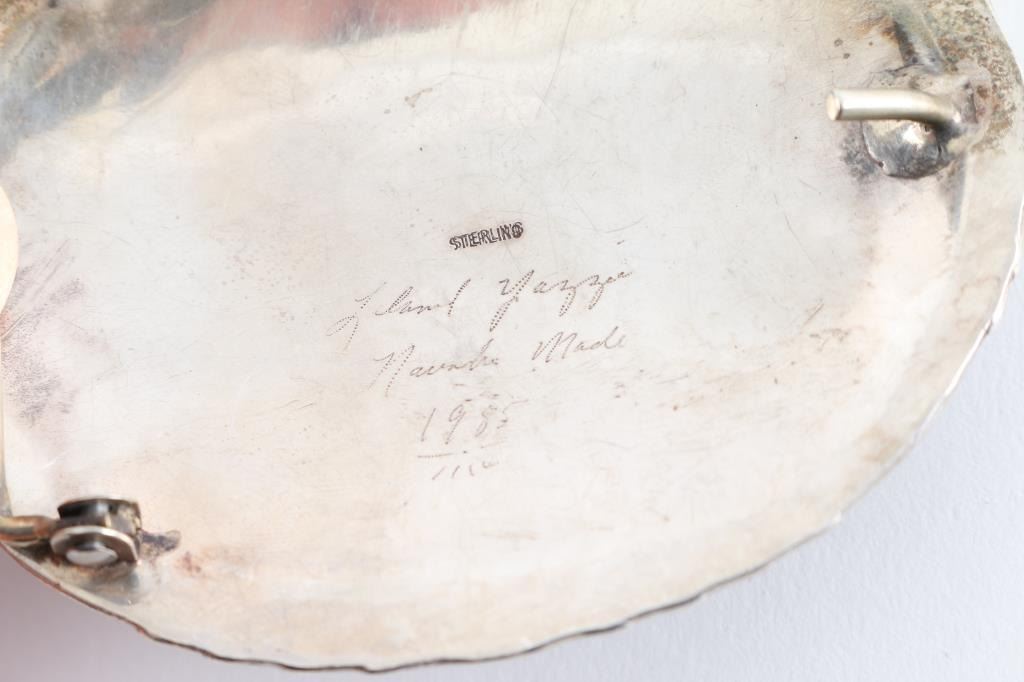 STERLING
Leland Yazzie
Navaho Made
1985